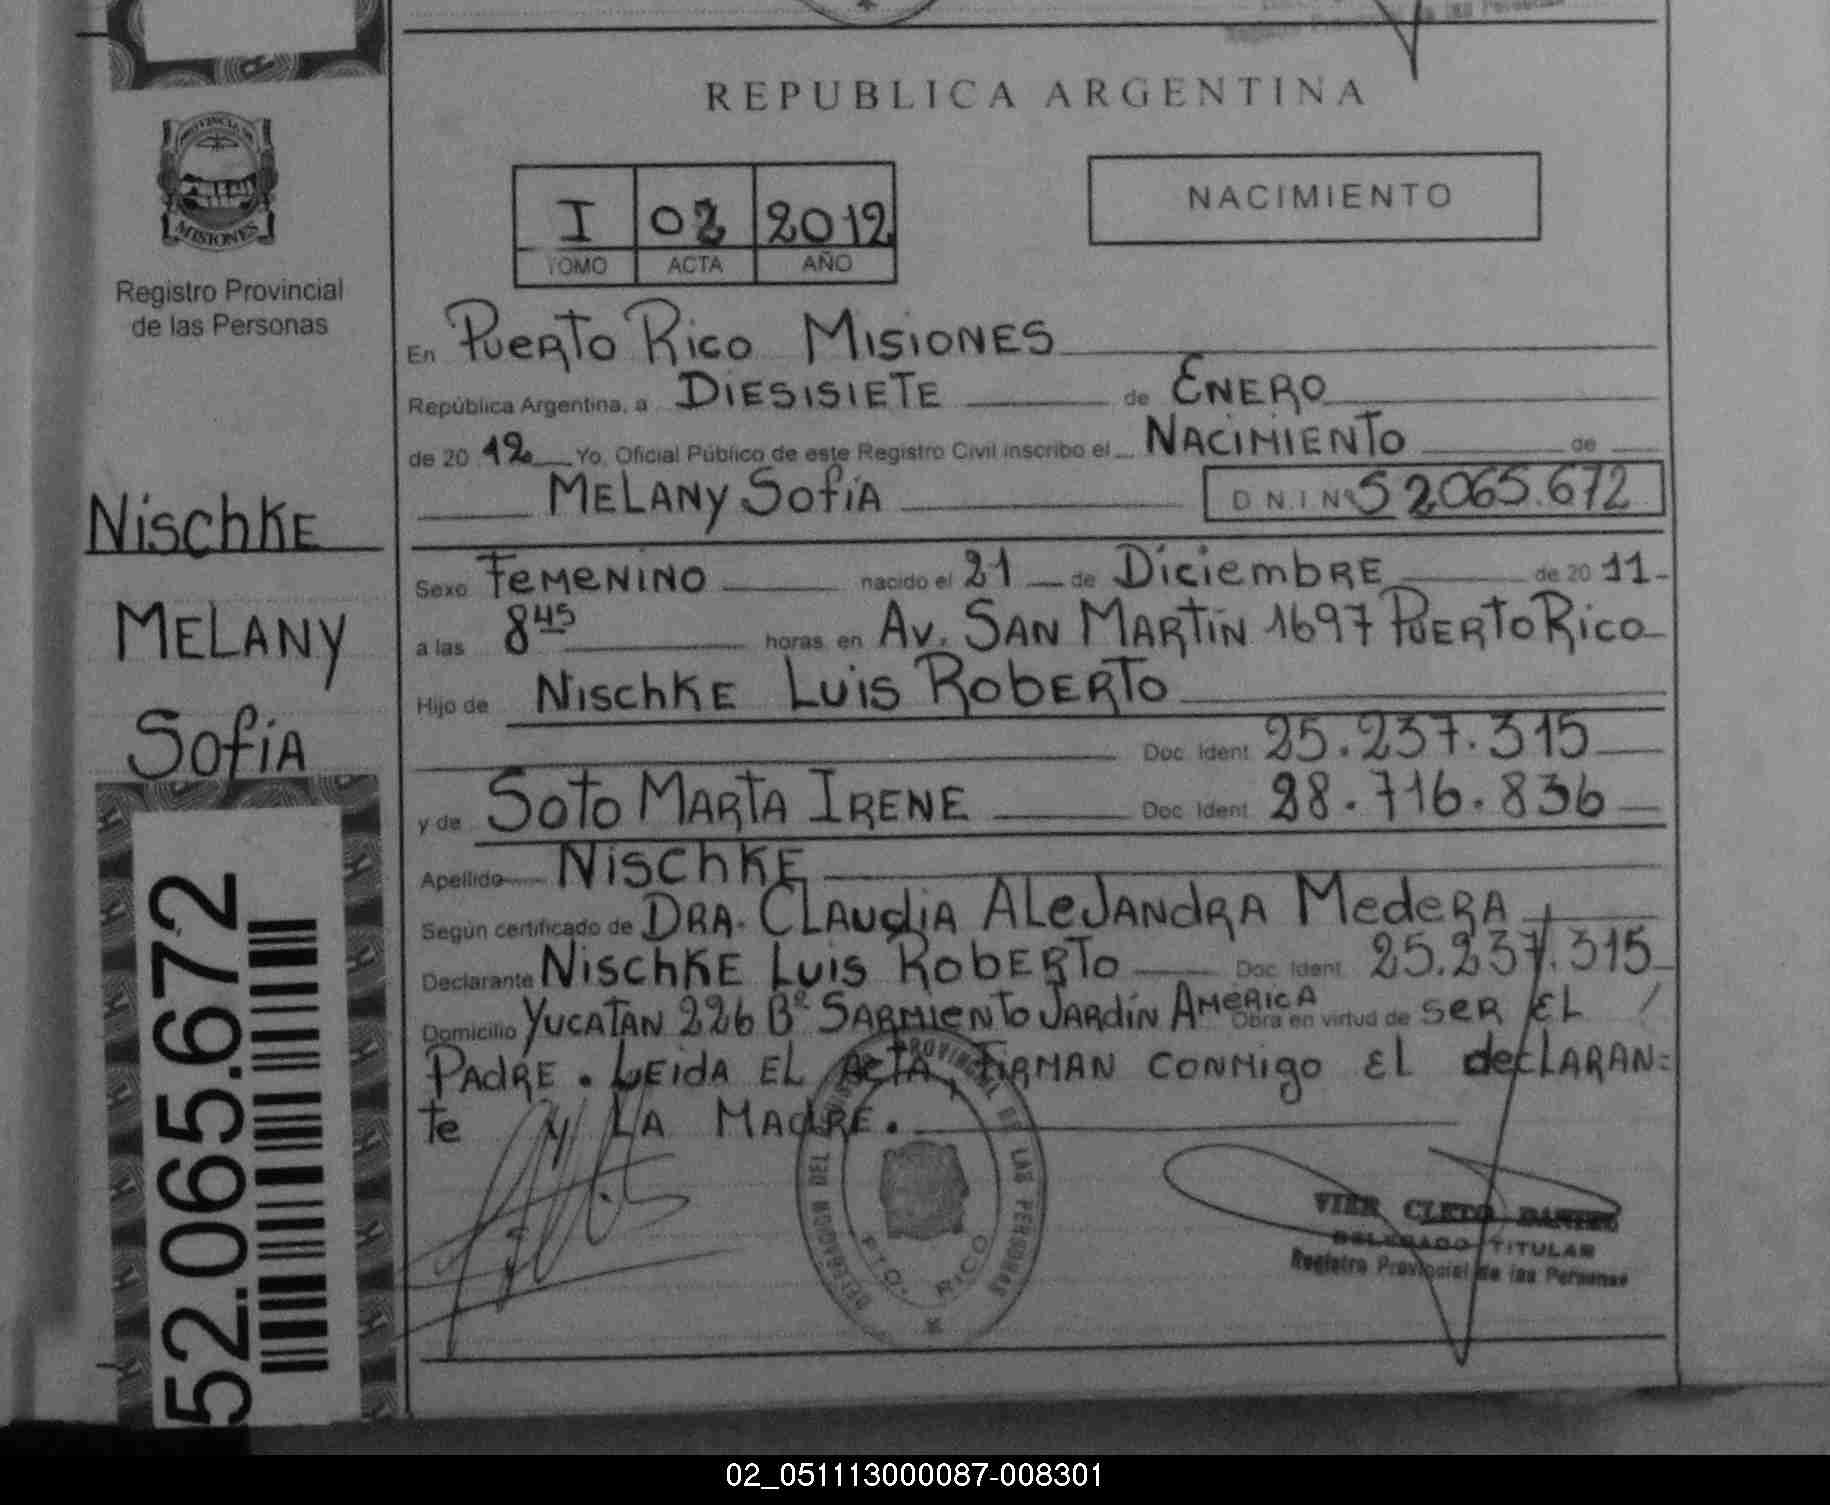 REPUBLICA ARGENTINA
PROVINCIA DE
MISIONES
Registro Provincial
de las Personas
I 02 2012
TOMO ACTA AÑO
NACIMIENTO
En Puerto Rico Misiones
República Argentina, a Diesisiete de Enero
de 20 12 Yo, Oficial Público de este Registro Civil inscribo el Nacimiento de
Melany Sofía D.N.I Nº 52065.672
Sexo Femenino nacido el 21 de Diciembre de 20 11
a las 8 45 horas en Av. San Martin 1697 Puerto Rico
Hijo de Nischke Luis Roberto
Doc. Ident. 25.237.315
y de Soto Marta Irene Doc. Ident. 28.716.836
Apellido Nischke
Según certificado de Dra. Claudia Alejandra Medera
Declarante Nischke Luis Roberto Doc. Ident. 25.237.315
Domicilio Yucatan 226 Bº Sarmiento Jardín América Obra en virtud de ser el
Padre. Leida el acta, firman conmigo el declaran=
te y la Madre.
Nischke
Melany
Sofía
52.065.672
DELEGACION DEL REGISTRO PROVINCIAL DE LAS PERSONAS
PTO. RICO
VIER CLETO
DELEGADO TITULAR
Registro Provincial de las Personas
02_051113000087-008301